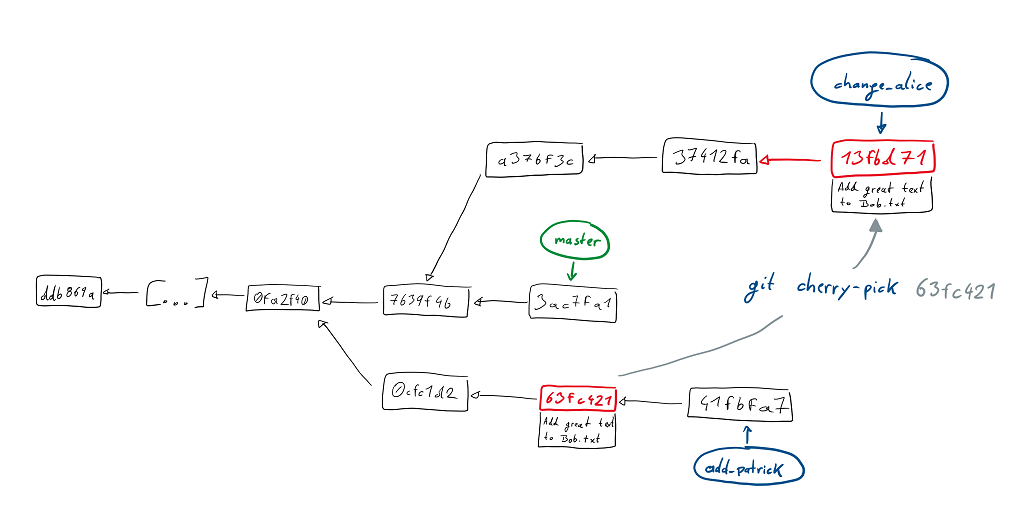 change_alice
a376f3c
37412fa
13fbd71
Add great text
to Bob.txt
master
ddb869a
[...]
0fa2f40
7639f46
3ac7fa1
git cherry-pick 63fc421
0cfc1d2
63fc421
41fbfa7
Add great text
to Bob.txt
add_patrick